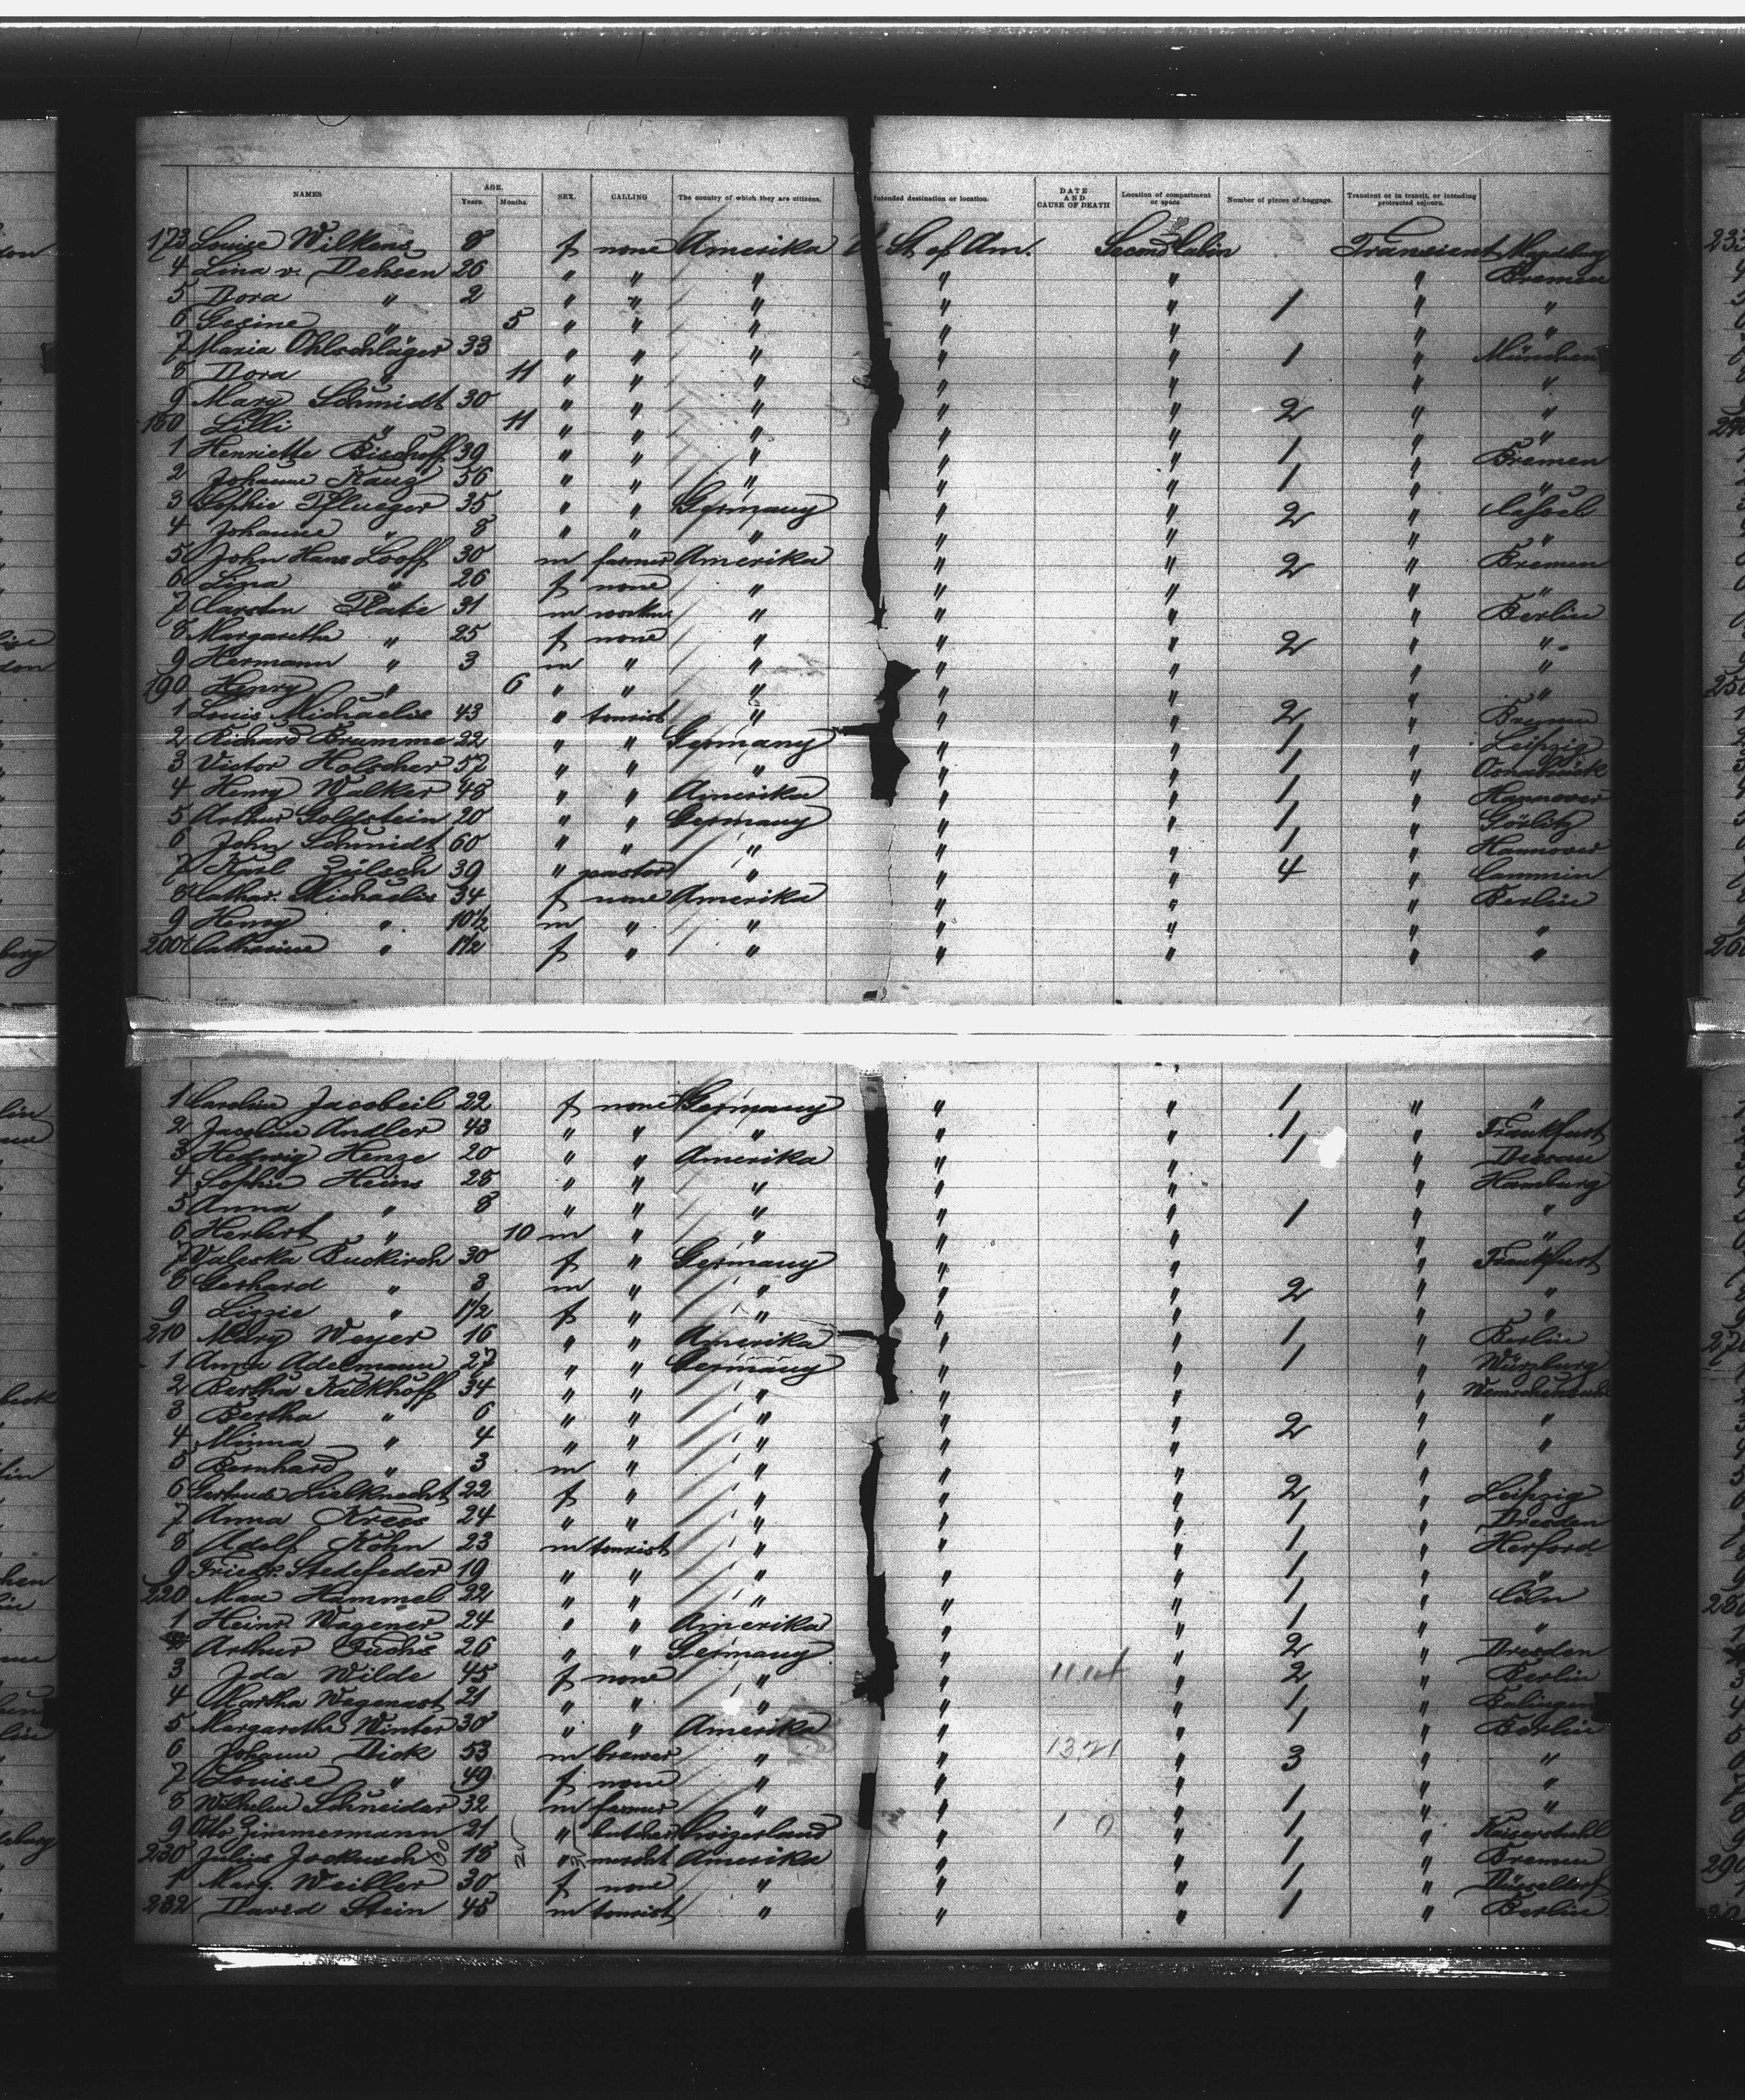 NAMES AGE. Years. Months. SEX. CALLING The country of which they are citizens. Intended destination or location. DATE AND CAUSE OF DEATH Location of compartment or space Number of pieces of baggage. Transient or in transit, or intending protracted sojourn.
173 Louise Wilkens 8 f none Amerika St of Am. Second Cabin Transient Magdeburg
4 Lina v. Dehsen 26 " " " " " " Bremen
5 Dora " 2 " " " " " 1 " "
6 Gesine " 5 " " " " " " "
7 Maria Ohlschläger 33 " " " " " 1 " München
8 Dora " 11 " " " " " " "
9 Mary Schmidt 30 " " " " " 2 " "
180 Lilli " 11 " " " " " " "
1 Henriette Bischoff 39 " " " " " 1 " Bremen
2 Johanne Kaug 56 " " " " " 1 " "
3 Sophie Pflueger 35 " " Germany " " 2 " Cassel
4 Johanne " 8 " " " " " " "
5 John Hans Looff 30 m farmer Amerika " " 2 " Bremen
6 Lina " 26 f none " " " " "
7 Carsten Plate 31 m " " " " Berlin
8 Margarethe " 25 f none " " " 2 " "
9 Hermann " 3 m " " " " " "
190 Henry " 6 " " " " " " "
1 Louis Michaelis 43 " tourist " " " 2 " Bremen
2 Richard Brumme 22 " " Germany " " 1 " Leipzig
3 Victor Holscher 52 " " " " " 1 " Osnabrück
4 Henry Walker 48 " " Amerika " " 1 " Hannover
5 Arthur Goldstein 20 " " Germany " " 1 " Görlitz
6 John Schmidt 60 " " " " " 1 " Hannover
7 Karl Zülsch 39 " pastor " " " 4 " Cammin
8 Cathar. Michaelis 34 f none Amerika " " " Berlin
9 Henry " 10½ m " " " " " "
200 Catharine " 1½ f " " " " " "
1 Caroline Jacobeil 22 f none Germany " " 1 " "
2 Andler 43 " " " " " 1 " Frankfurt
3 Hedwig Henze 20 " " Amerika " " 1 " Dessau
4 Sophie Heins 28 " " " " " " Hamburg
5 Anna " 8 " " " " " 1 " "
6 Herbert " 10 m " " " " " "
7 Valeska Buskirch 30 f " Germany " " " Frankfurt
8 Gerhard " 3 m " " " " 2 " "
9 Lizzie " 1½ f " " " " " "
210 Mary Weyer 16 " " Amerika " " 1 " Berlin
1 Anna Adelmann 27 " " Germany " " 1 " Würzburg
2 Bertha Kalkhoff 34 " " " " " "
3 Bertha " 6 " " " " " 2 " "
4 Minna " 4 " " " " " " "
5 Bernhard " 3 m " " " " " "
6 Gertrude Liebknecht 22 f " " " " 2 " Leipzig
7 Anna Kress 24 " " " " " 1 " Dresden
8 Adolf Kohn 23 m tourist " " " 1 " Herford
9 Friedr. Stedefeder 19 " " " " " 1 " "
220 Max Hammel 22 " " " " " 1 " Cöln
1 Heinr. Wagener 24 " " Amerika " " 1 " "
Arthur Fuchs 26 " " Germany " " 2 " Dresden
3 Ida Wilde 45 f none " " " 2 " Berlin
4 Martha Wegenast 21 " " " " " 1 " Balingen
5 Margarethe Winter 30 " " Amerika " " 1 " Berlin
6 Johann Dick 53 m brewer " " " 3 " "
7 Louise " 49 f none " " " " "
8 Wilhelm Schneider 32 m farmer " " " 1 " "
9 Otto Zimmermann 21 " butcher Swizerland " " 1 " Kaiserstuhl
230 Julius Jockusch 18 " Amerika " " 1 " Bremen
1 Marg. Weiller 30 f none " " " 1 " Düsseldorf
232 David Stein 45 m tourist " " " 1 " Berlin